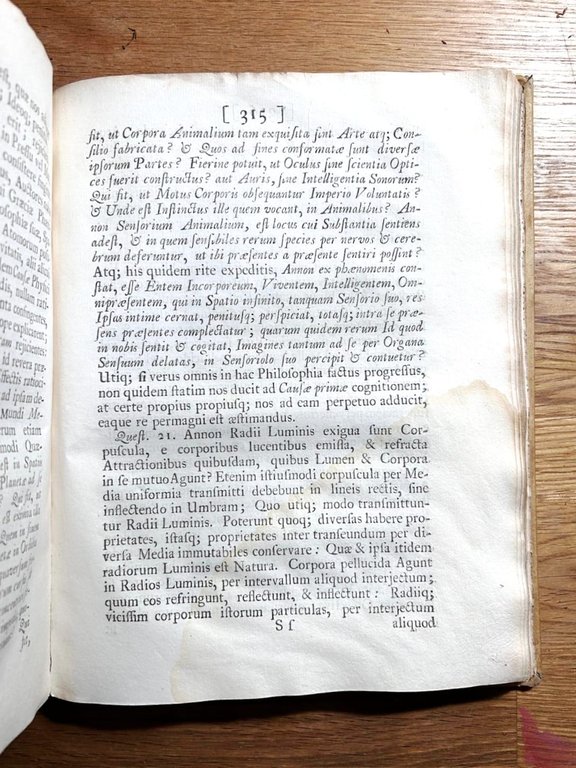 [ 315 ]
fit, ut Corpora Animalium tam exquisita sint Arte atq; Con-
silio fabricata? & Quos ad fines conformatæ sunt diversæ
ipsorum Partes? Fierine potuit, ut Oculus sine scientia Opti-
ces fuerit constructus? aut Auris, sine Intelligentia Sonorum?
Qui fit, ut Motus Corporis obsequantur Imperio Voluntatis?
& Unde est Instinctus ille quem vocant, in Animalibus? An-
non Sensorium Animalium, est locus cui Substantia sentiens
adest, & in quem sensibiles rerum species per nervos & cere-
brum deferuntur, ut ibi præsentes a præsente sentiri possint?
Atq; his quidem rite expeditis, Annon ex phænomenis con-
stat, esse Entem Incorporeum, Viventem, Intelligentem, Om-
nipræsentem, qui in Spatio infinito, tanquam Sensorio suo, res
Ipsas intime cernat, penitusq; perspiciat, totasq; intra se præ-
sens præsentes complectatur; quarum quidem rerum Id quod
in nobis sentit & cogitat, Imagines tantum ad se per Organa
Sensuum delatas, in Sensoriolo suo percipit & contuetur?
Utiq; si verus omnis in hac Philosophia factus progressus,
non quidem statim nos ducit ad Causæ primæ cognitionem;
at certe propius propiusq; nos ad eam perpetuo adducit,
eaque re permagni est æstimandus.
Quest. 21. Annon Radii Luminis exigua sunt Cor-
puscula, e corporibus lucentibus emissa, & refracta
Attractionibus quibusdam, quibus Lumen & Corpora
in se mutuo Agunt? Etenim istiusmodi corpuscula per Me-
dia uniformia transmitti debebunt in lineis rectis, sine
inflectendo in Umbram; Quo utiq; modo transmittun-
tur Radii Luminis. Poterunt quoq; diversas habere pro-
prietates, istasq; proprietates inter transeundum per di-
versa Media immutabiles conservare: Quæ & ipsa itidem
radiorum Luminis est Natura. Corpora pellucida Agunt
in Radios Luminis, per intervallum aliquod interjectum;
quum eos refringunt, reflectunt, & inflectunt: Radiiq;
vicissim corporum istorum particulas, per interjectum
S s aliquod